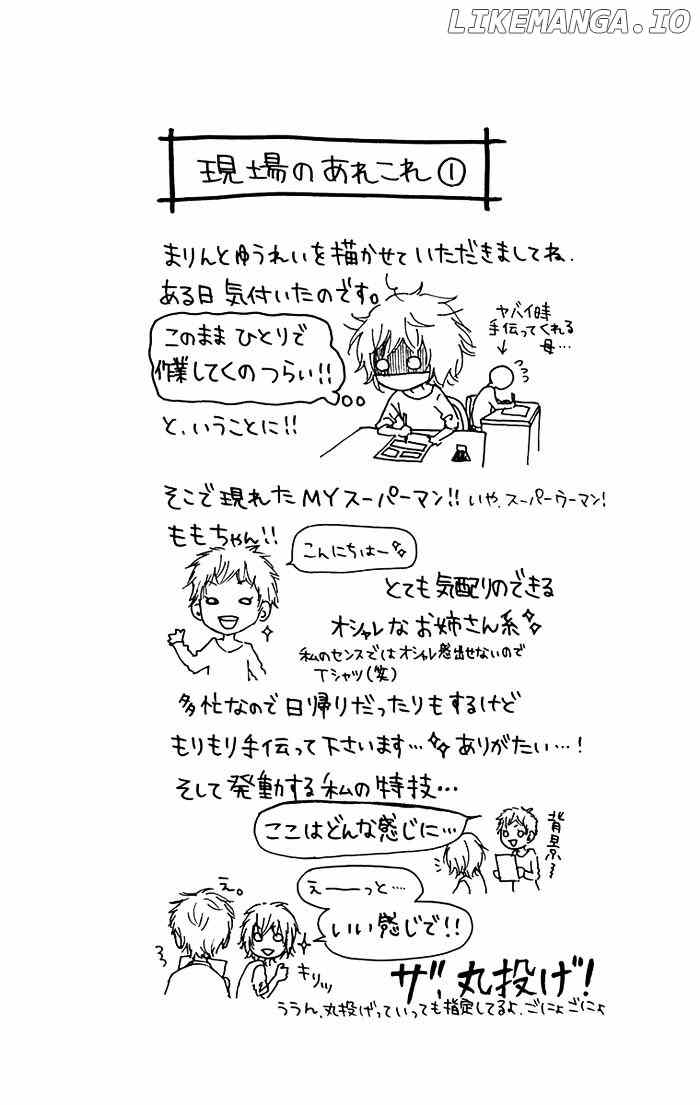 LIKEMANGA.IO
現場のあれこれ①
まりんとゆうれいを描かせていただきましてね、
ある日気付いたのです。
このままひとりで
作業してくのつらい!!
ヤバイ時
手伝ってくれる
母…
と、いうことに!!
そこで現れたMYスーパーマン!!いや、スーパーウーマン!
ももちゃん!!
こんにちはー
とても気配りのできる
オシャレなお姉さん系
私のセンスではオシャレ感出せないので
Tシャツ(笑)
多忙なので日帰りだったりもするけど
もりもり手伝って下さいます…ありがたい…!
そして発動する私の特技…
ここはどんな感じに…
背景
え。
えーーっと….
いい感じで!!
キリッ
ザ、丸投げ!
ううん、丸投げっていっても指定してるよ、ごにょごにょ